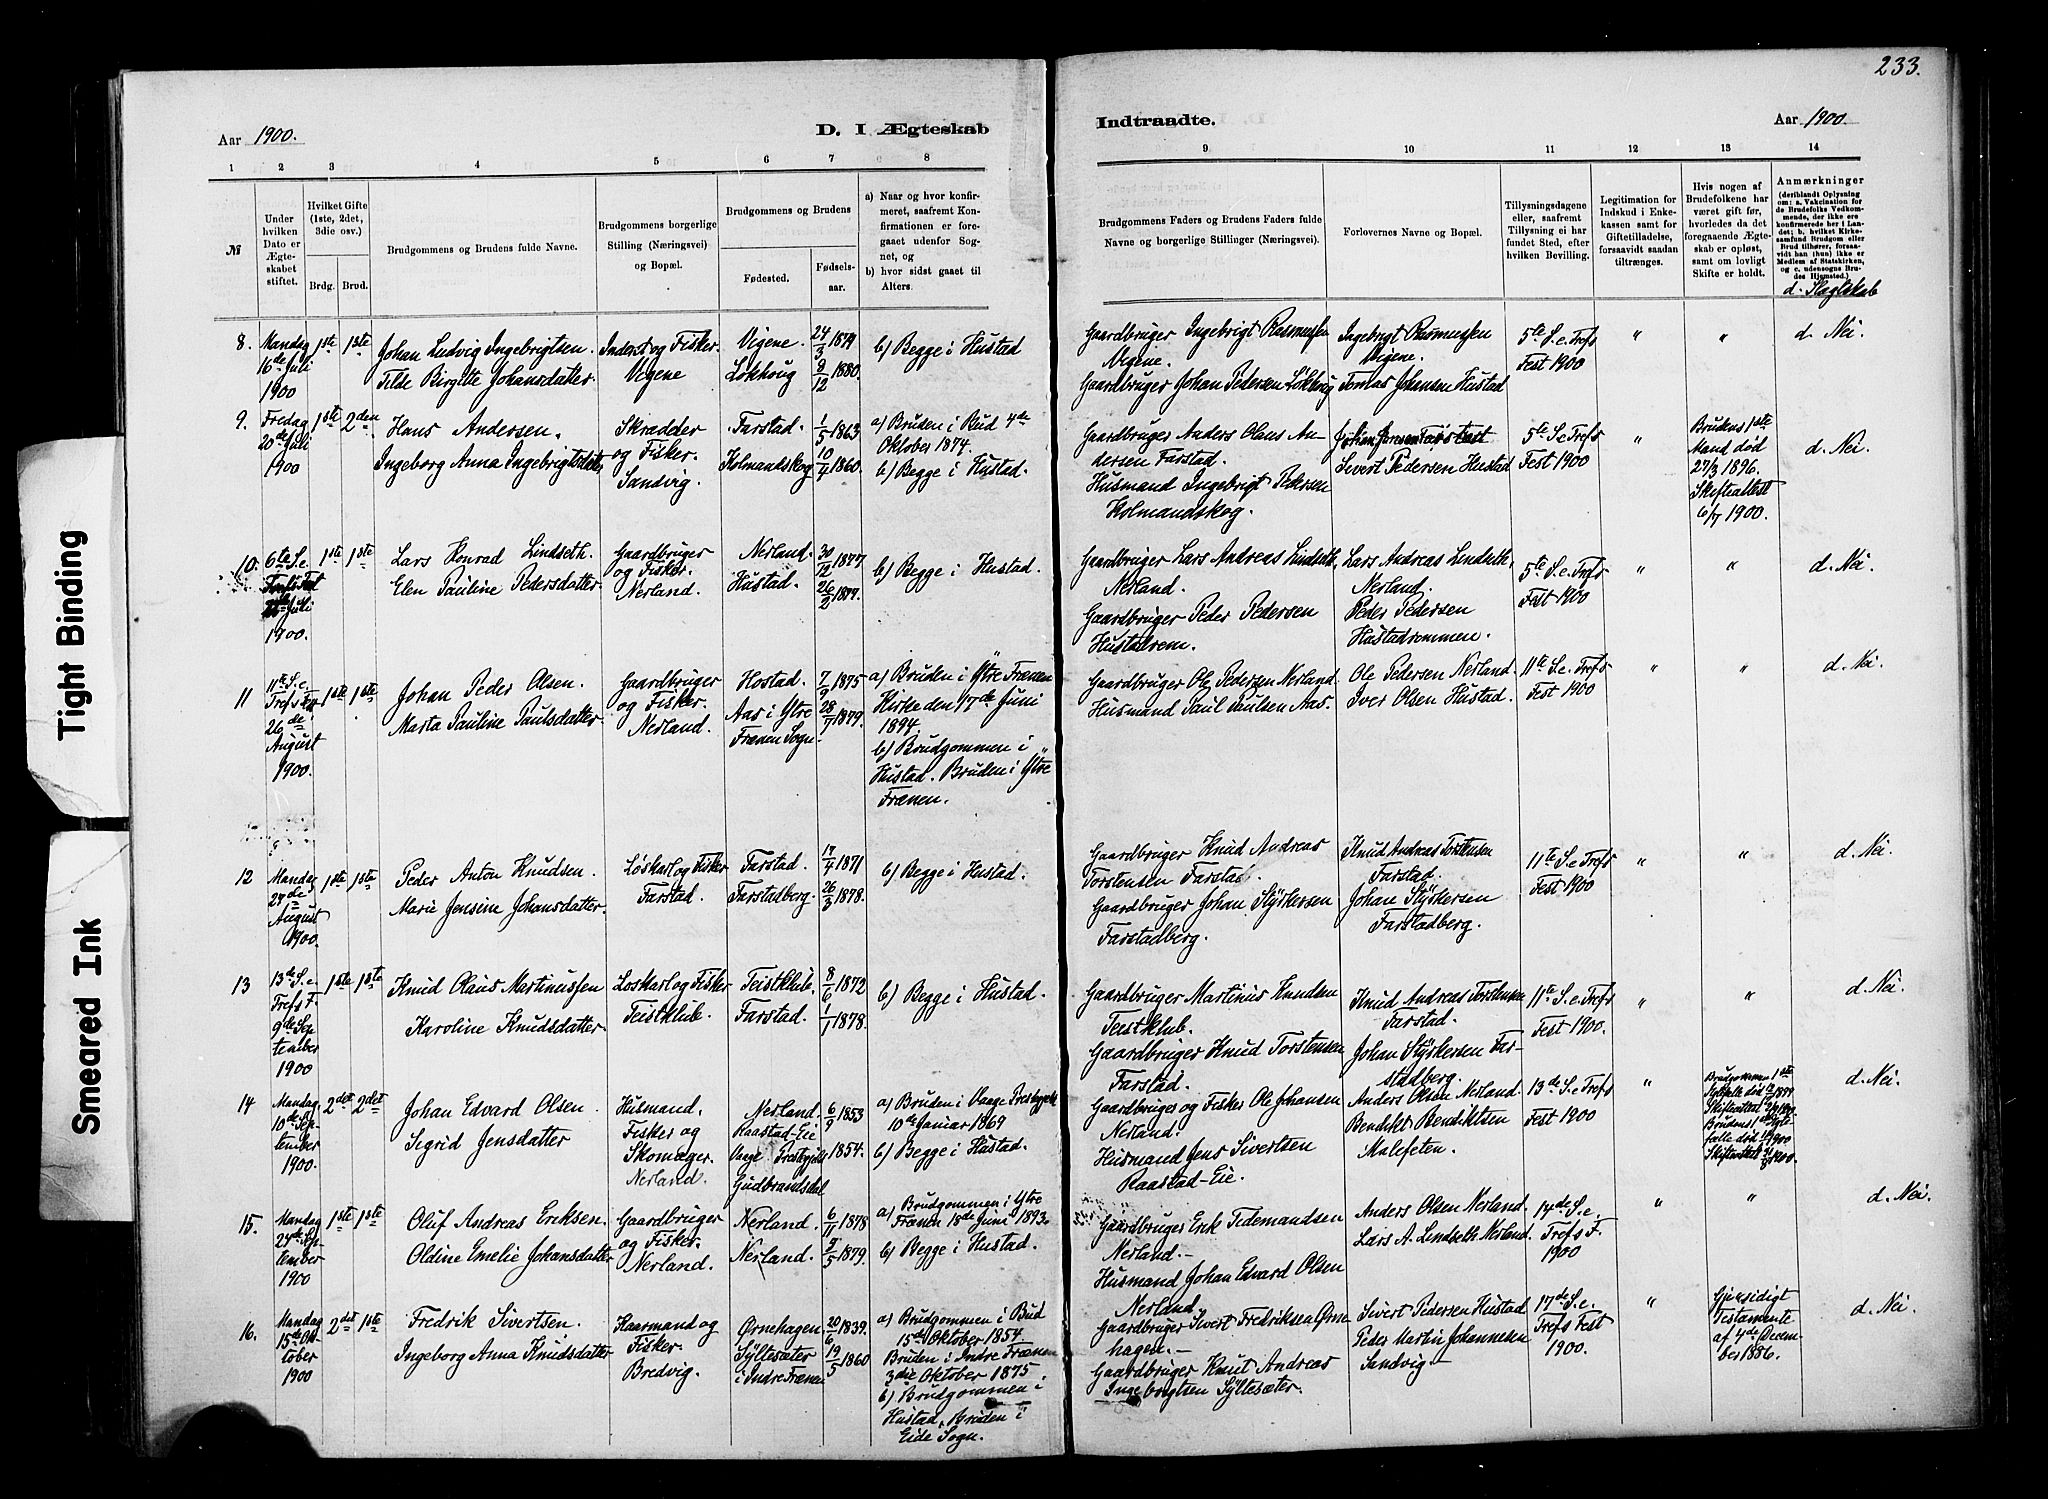 233.
Aar 1900.
D. I Ægteskab
Indtraadte.
Aar 1900.
1 2 3 4 5 6 7 8
9 10 11 12 13 14
№
Under
hvilken
Dato er
Ægte-
skabet
stiftet.
Hvilket Gifte
(1ste, 2det,
3die osv.)
Brdg. Brud.
Brudgommens og Brudens fulde Navne.
Brudgommens borgerlige
Stilling (Næringsvei)
og Bopæl.
Brudgommens og Brudens
Fødested.
Fødsels-
aar.
a) Naar og hvor konfir-
meret, saafremt Kon-
firmationen er fore-
gaaet udenfor Sog-
net, og
b) hvor sidst gaaet til
Alters.
Brudgommens Faders og Brudens Faders fulde
Navne og borgerlige Stillinger (Næringsvei).
Forlovernes Navne og Bopæl.
Tillysningsdagene
eller, saafremt
Tillysning ei har
fundet Sted, efter
hvilken Bevilling.
Legitimation for
Indskud i Enke-
kassen samt for
Giftetilladelse,
forsaavidt saadan
tiltrænges.
Hvis nogen af
Brudefolkene har
været gift før,
hvorledes da det
foregaaende Ægte-
skab er opløst,
samt om lovligt
Skifte er holdt.
Anmærkninger
(deriblandt Oplysning
om: a. Vakcination for
de Brudefolks Vedkom-
mende, der ikke ere
konfirmerede her i Lan-
det; b. hvilket Kirke-
samfund Brudgom eller
Brud tilhører, forsaa-
vidt han (hun) ikke er
Medlem af Statskirken,
og c. udensogns Bru-
des Hjemsted.)
d. Slagtskab
8.
Mandag
16de Juli
1900
1ste 1ste
Johan Ludvig Ingebrigtsen.
Tilde Birgitte Johansdatter.
Inderst og Fisker.
Vigene
Vigene.
Løkhoug
24/3 1879
8/12 1880.
b) Begge i Hustad
Gaardbruger Ingebrigt Rasmussen
Vigene.
Gaardbruger Johan Pedersen Løkhoug
Ingebrigt Rasmussen
Vigene.
Tomas Johansen Hustad
5te S. e. Trefs
Fest 1900
" "
d. Nei.
9.
Fredag
20de Juli
1900
1ste 2den
Hans Andersen.
Ingeborg Anna Ingebrigtsdatter
Skrædder
og Fisker.
Sandvig.
Farstad.
Kolmandskog
1/5 1863
10/4 1860.
a) Bruden i Bud 4de
Oktober 1874.
b) Begge i Hustad.
Gaardbruger Anders Olaus An-
dersen Farstad.
Husmand Ingebrigt Pedersen
Holmandskog.
Sivert Pedersen Hustad
5te S e Trefs
Fest 1900
"
Brudens 1ste
Mand død
27/3 1896.
Skifteattest
6/7 1900.
d. Nei.
10.
6te S. e.
Juli
1900.
1ste 1ste
Lars Konrad Lindseth.
Elen Pauline Pedersdatter
Gaardbruger
og Fisker.
Nerland.
Nerland.
Hustad.
30/12 1877
26/2 1877.
b) Begge i Hustad.
Gaardbruger Lars Andreas Lindseth
Nerland.
Gaardbruger Peder Pedersen
Hustadrem.
Lars Andreas Lindseth,
Nerland.
Peder Pedersen
Hustadremmen.
5te S. e. Trefs
Fest 1900
" "
d. Nei.
11
11te S. e.
Trefs Fest
26de
August
1900.
1ste 1ste
Johan Peder Olsen.
Marta Pauline Paulsdatter.
Gaardbruger
og Fisker.
Nerland.
Hostad.
Aas i Ytre
Frænen Sogn.
7/9 1875
28/7 1879.
a) Bruden i Ytre Frænen
Kirke den 17de Juni
1894
b) Brudgommen i
Hustad. Bruden i Ytre
Frænen.
Gaardbruger Ole Pedersen Nerland.
Husmand Paul Paulsen Aas.
Ole Pedersen Nerland.
Iver Olsen Hustad.
11te S. e. Trefs
Fest 1900
" "
d. Nei.
12
Mandag
27de
August
1900.
1ste 1ste
Peder Anton Knudsen.
Marie Jensine Johansdatter.
Løskarl og Fisker
Farstad.
Farstad.
Farstadberg.
17/4 1871
26/3 1878.
b) Begge i Hustad.
Gaardbruger Knud Andreas
Torstensen Farstad.
Gaardbruger Johan Styrkersen
Farstadberg.
Knud Andreas Torstensen
Farstad.
Johan Styrkersen
Farstadberg.
11te S. e Trefs
Fest 1900
" "
d. Nei.
13
13de S. e.
Trefs F.
9de Sep-
tember
1900
1ste 1ste
Knud Olaus Martinussen
Karoline Knudsdatter.
Løskarl og Fisker
Teistklub.
Teistklub.
Farstad.
8/6 1872
1/1 1878.
b) Begge i Hustad.
Gaardbruger Martinus Knudsen
Teistklub.
Gaardbruger Knud Torstensen
Farstad.
Knud Andreas Torstensen
Farstad.
Johan Styrkersen Far-
stadberg.
11te S. e. Trefs
Fest 1900.
" "
d. Nei.
14
Mandag
10de Sep-
tember
1900.
2det 2det
Johan Edvard Olsen.
Sigrid Jensdatter
Husmand,
Fisker og
Skomager.
Nerland.
Nerland.
Raastad-Eie
Vaage Prestegjeld
Gudbrandsdal
6/9 1853
1854.
a) Bruden i Vaage Prestegjeld
10de Januar 1869
b) Begge i Hustad.
Gaardbruger og Fisker Ole Johansen
Nerland.
Husmand Jens Sivertsen
Raastad-Eie.
Anders Olsen Nerland.
Bendikt Bendiktsen
Malefeten.
13de S. e Trefs
Fest 1900
"
Brudgommens 1ste
d. Nei.
15.
Mandag
24de Sep-
tember
1900
1ste 1ste
Oluf Andreas Eriksen.
Oldine Emelie Johansdatter
Gaardbruger
og Fisker.
Nerland.
Nerland.
Nerland.
6/11 1878
2/5 1879.
a) Brudgommen i Ytre
Frænen 18de Juni 1893.
b) Begge i Hustad.
Gaardbruger Erik Tidemandsen
Nerland.-
Husmand Johan Edvard Olsen
Nerland
Anders Olsen Nerland.
Lars A. Lindseth Nerland.
14de S. e.
Trefs F.
1900
" "
d. Nei.
16.
Mandag
15de Ok-
tober
1900
2det 1ste
Fredrik Sivertsen.
Ingeborg Anna Knudsdatter
Kaarmand og
Fisker.
Bredvig.
Ørnehagen
Syltesæter
i Indre Frænen
20/6 1839.
19/5 1860
a) Brudgommen i Bud
15de Oktober 1854
Bruden i Indre Frænen
3die Oktober 1875
b) Brudgommen i
Hustad, Bruden i
Eide Sogn.
Gaardbruger Sivert Fredriksen Ørne
hagen.-
Gaardbruger Knut Andreas
Ingebrigtsen Syltesæter.
Sivert Pedersen Hustad
Peder Martin Johannesen
Sandvig-
17de S. e.
Trefs Fest
1900.
"
Gjensidigt
Testamente
af 4de Decem
ber 1886.
d. Nei.
Tight Binding
Smeared Ink